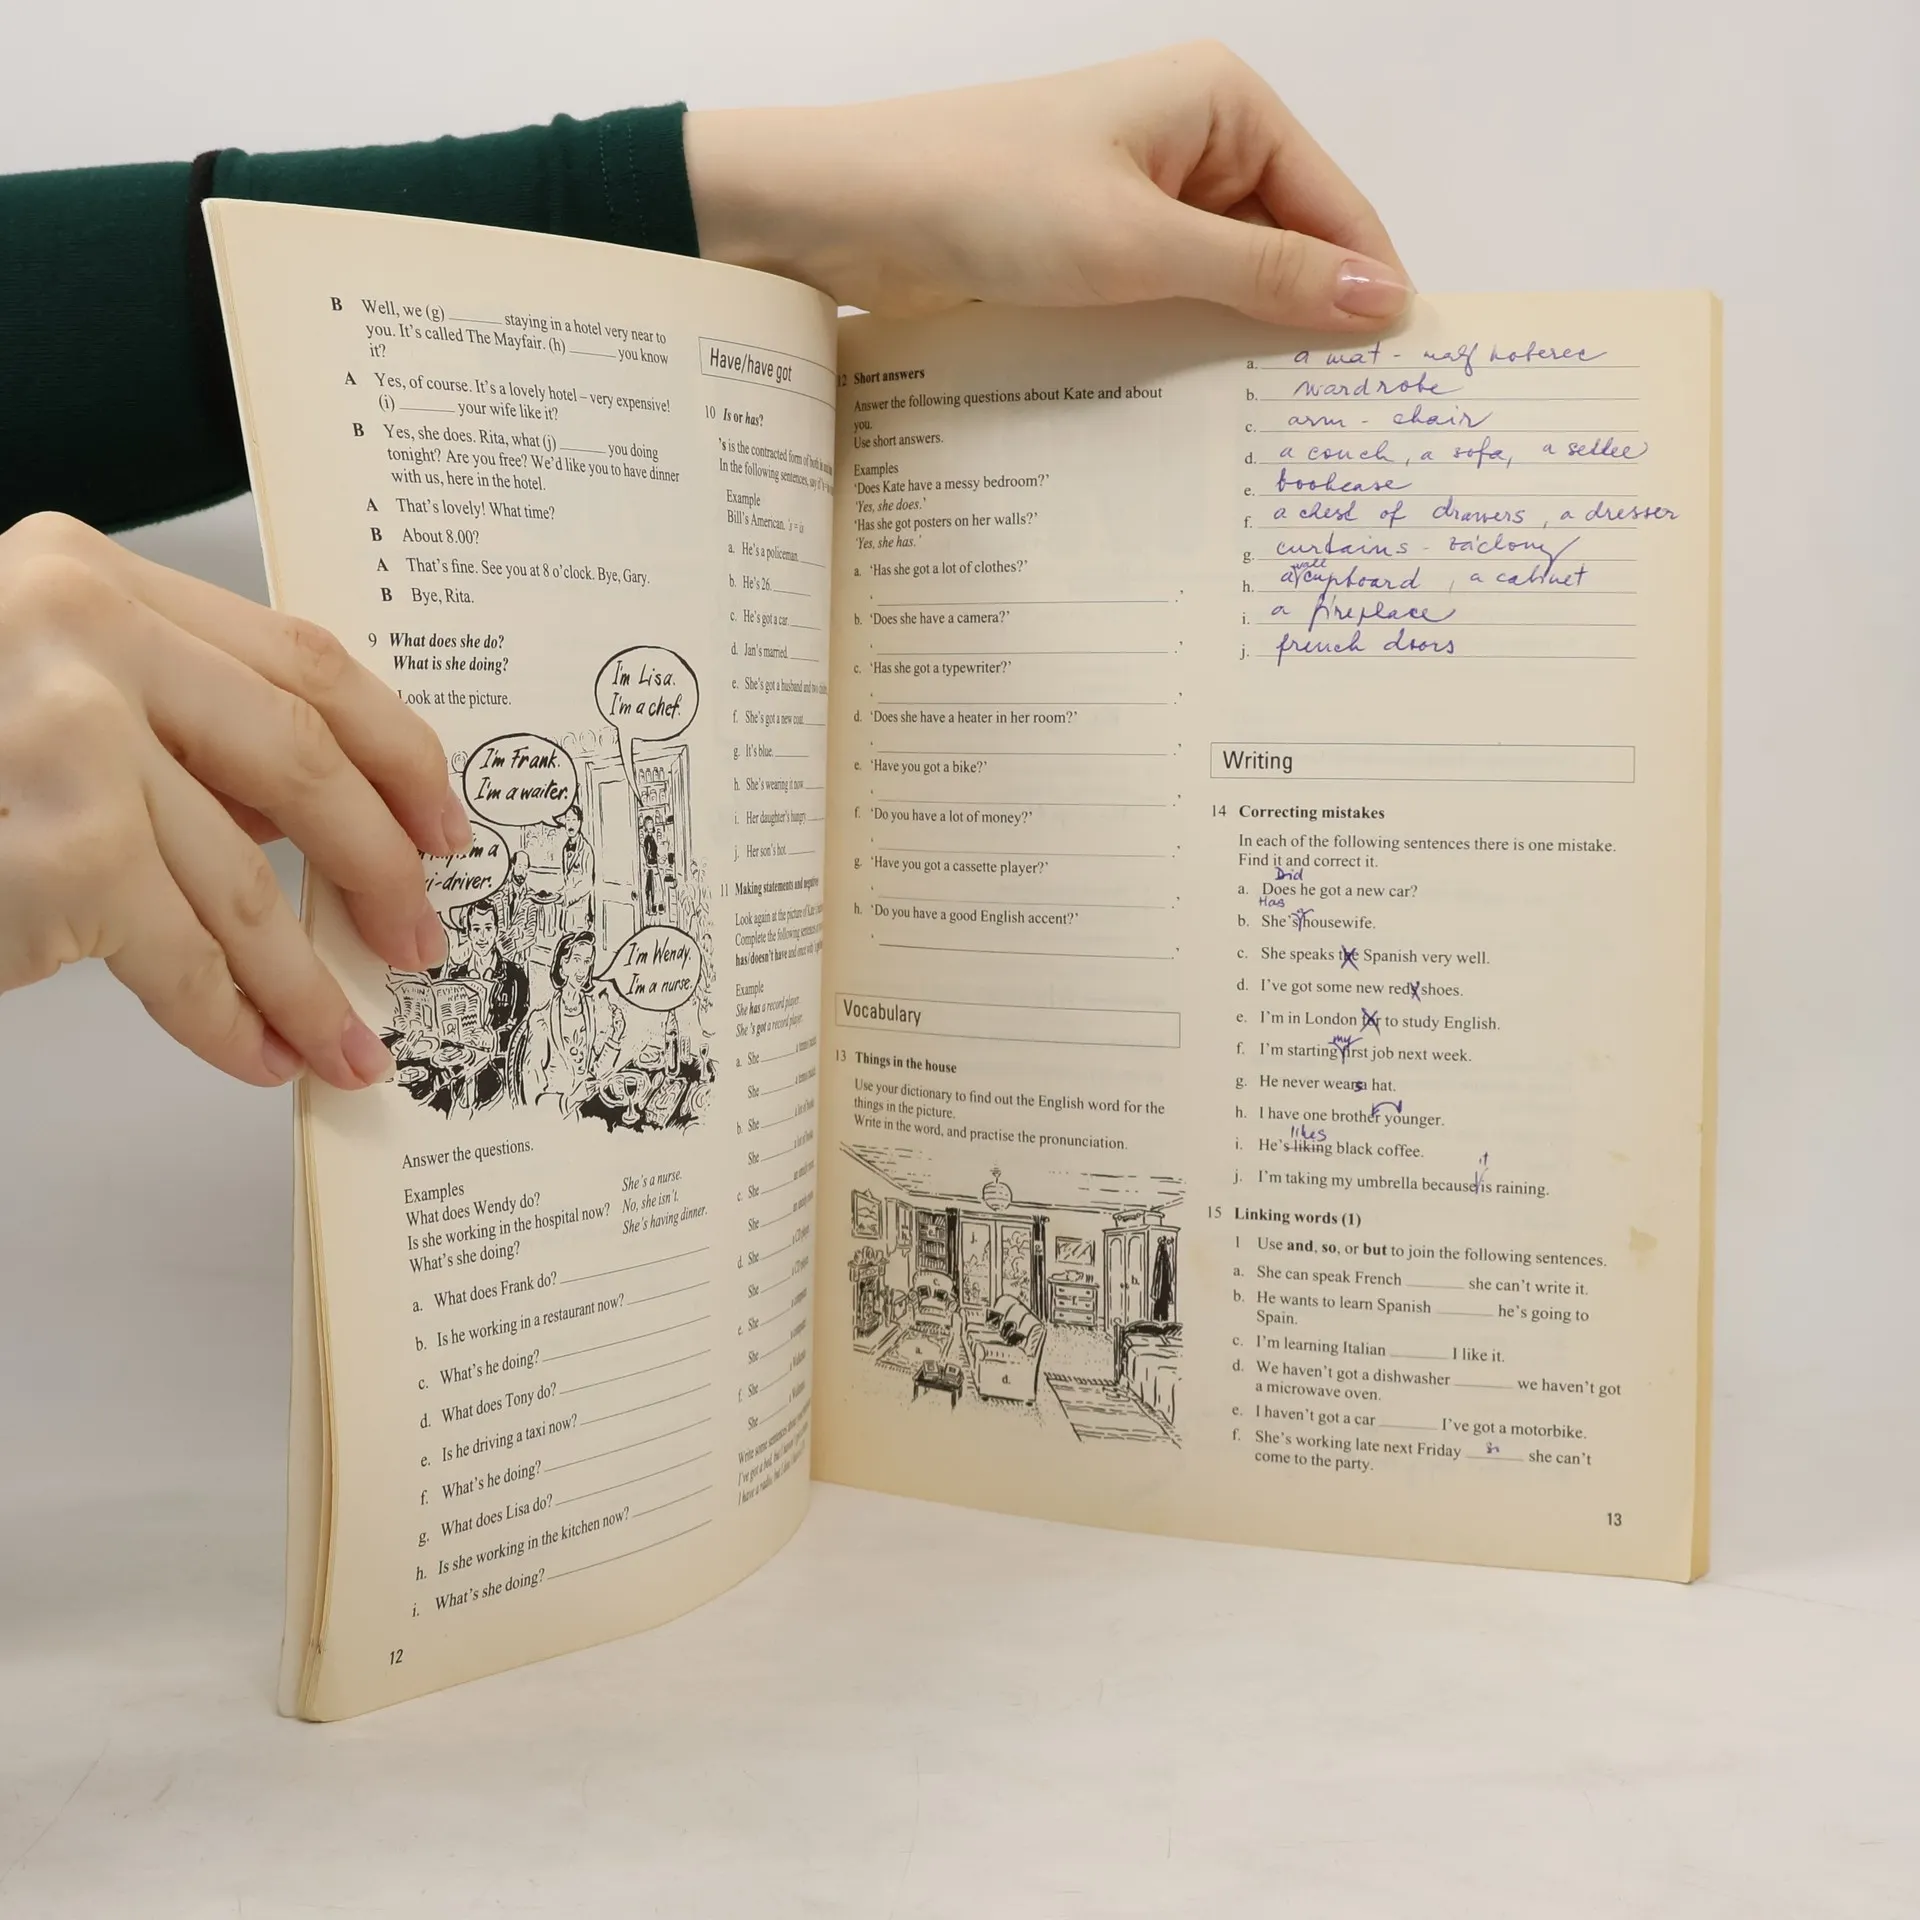 B Well, we (g) ______ staying in a hotel very near to
you. It's called The Mayfair. (h) ______ you know
it?
A Yes, of course. It's a lovely hotel – very expensive!
(i) ______ your wife like it?
B Yes, she does. Rita, what (j) ______ you doing
tonight? Are you free? We'd like you to have dinner
with us, here in the hotel.
A That's lovely! What time?
B About 8.00?
A That's fine. See you at 8 o'clock. Bye, Gary.
B Bye, Rita.
9 What does she do?
What is she doing?
Look at the picture.
I'm Lisa.
I'm a chef.
I'm Frank.
I'm a waiter.
I'm a
i-driver.
I'm Wendy.
I'm a nurse.
Answer the questions.
Examples
What does Wendy do? She's a nurse.
Is she working in the hospital now? No, she isn't.
What's she doing? She's having dinner.
a. What does Frank do? ______
b. Is he working in a restaurant now? ______
c. What's he doing? ______
d. What does Tony do? ______
e. Is he driving a taxi now? ______
f. What's he doing? ______
g. What does Lisa do? ______
h. Is she working in the kitchen now? ______
i. What's she doing? ______
12
Have/have got
10 Is or has?
's is the contracted form of both is
In the following sentences, say if
Example
Bill's American. 's = is
a. He's a policeman. ______
b. He's 26. ______
c. He's got a car. ______
d. Jan's married. ______
e. She's got a husband and two
f. She's got a new coat. ______
g. It's blue. ______
h. She's wearing it now. ______
i. Her daughter's hungry. ______
j. Her son's hot. ______
11 Making statements and negatives
Look again at the picture of Kate
Complete the following sentences
has/doesn't have and once with
Example
She has a record player.
She 's got a record player.
a. She ______
She ______
b. She ______
She ______
c. She ______
She ______
d. She ______
She ______
e. She ______
She ______
f. She ______
She ______
Write some sentences about
12 Short answers
Answer the following questions about Kate and about
you.
Use short answers.
Examples
'Does Kate have a messy bedroom?'
'Yes, she does.'
'Has she got posters on her walls?'
'Yes, she has.'
a. 'Has she got a lot of clothes?'
' ______ .'
b. 'Does she have a camera?'
' ______ .'
c. 'Has she got a typewriter?'
' ______ .'
d. 'Does she have a heater in her room?'
' ______ .'
e. 'Have you got a bike?'
' ______ .'
f. 'Do you have a lot of money?'
' ______ .'
g. 'Have you got a cassette player?'
' ______ .'
h. 'Do you have a good English accent?'
' ______ .'
Vocabulary
13 Things in the house
Use your dictionary to find out the English word for the
things in the picture.
Write in the word, and practise the pronunciation.
j.
c.
h.
a.
d.
a. a mat - malý koberec
b. wardrobe
c. arm - chair
d. a couch, a sofa, a settee
e. bookcase
f. a chest of drawers, a dresser
g. curtains - záclony
wall
h. a cupboard, a cabinet
i. a fireplace
j. french doors
Writing
14 Correcting mistakes
In each of the following sentences there is one mistake.
Find it and correct it.
Did
a. Does he got a new car?
Has
a
b. She's housewife.
c. She speaks the Spanish very well.
d. I've got some new reds shoes.
e. I'm in London for to study English.
my
f. I'm starting first job next week.
g. He never wears a hat.
h. I have one brother younger.
likes
i. He's liking black coffee.
it
j. I'm taking my umbrella because is raining.
15 Linking words (1)
1 Use and, so, or but to join the following sentences.
a. She can speak French ______ she can't write it.
b. He wants to learn Spanish ______ he's going to
Spain.
c. I'm learning Italian ______ I like it.
d. We haven't got a dishwasher ______ we haven't got
a microwave oven.
e. I haven't got a car ______ I've got a motorbike.
f. She's working late next Friday so she can't
come to the party.
13